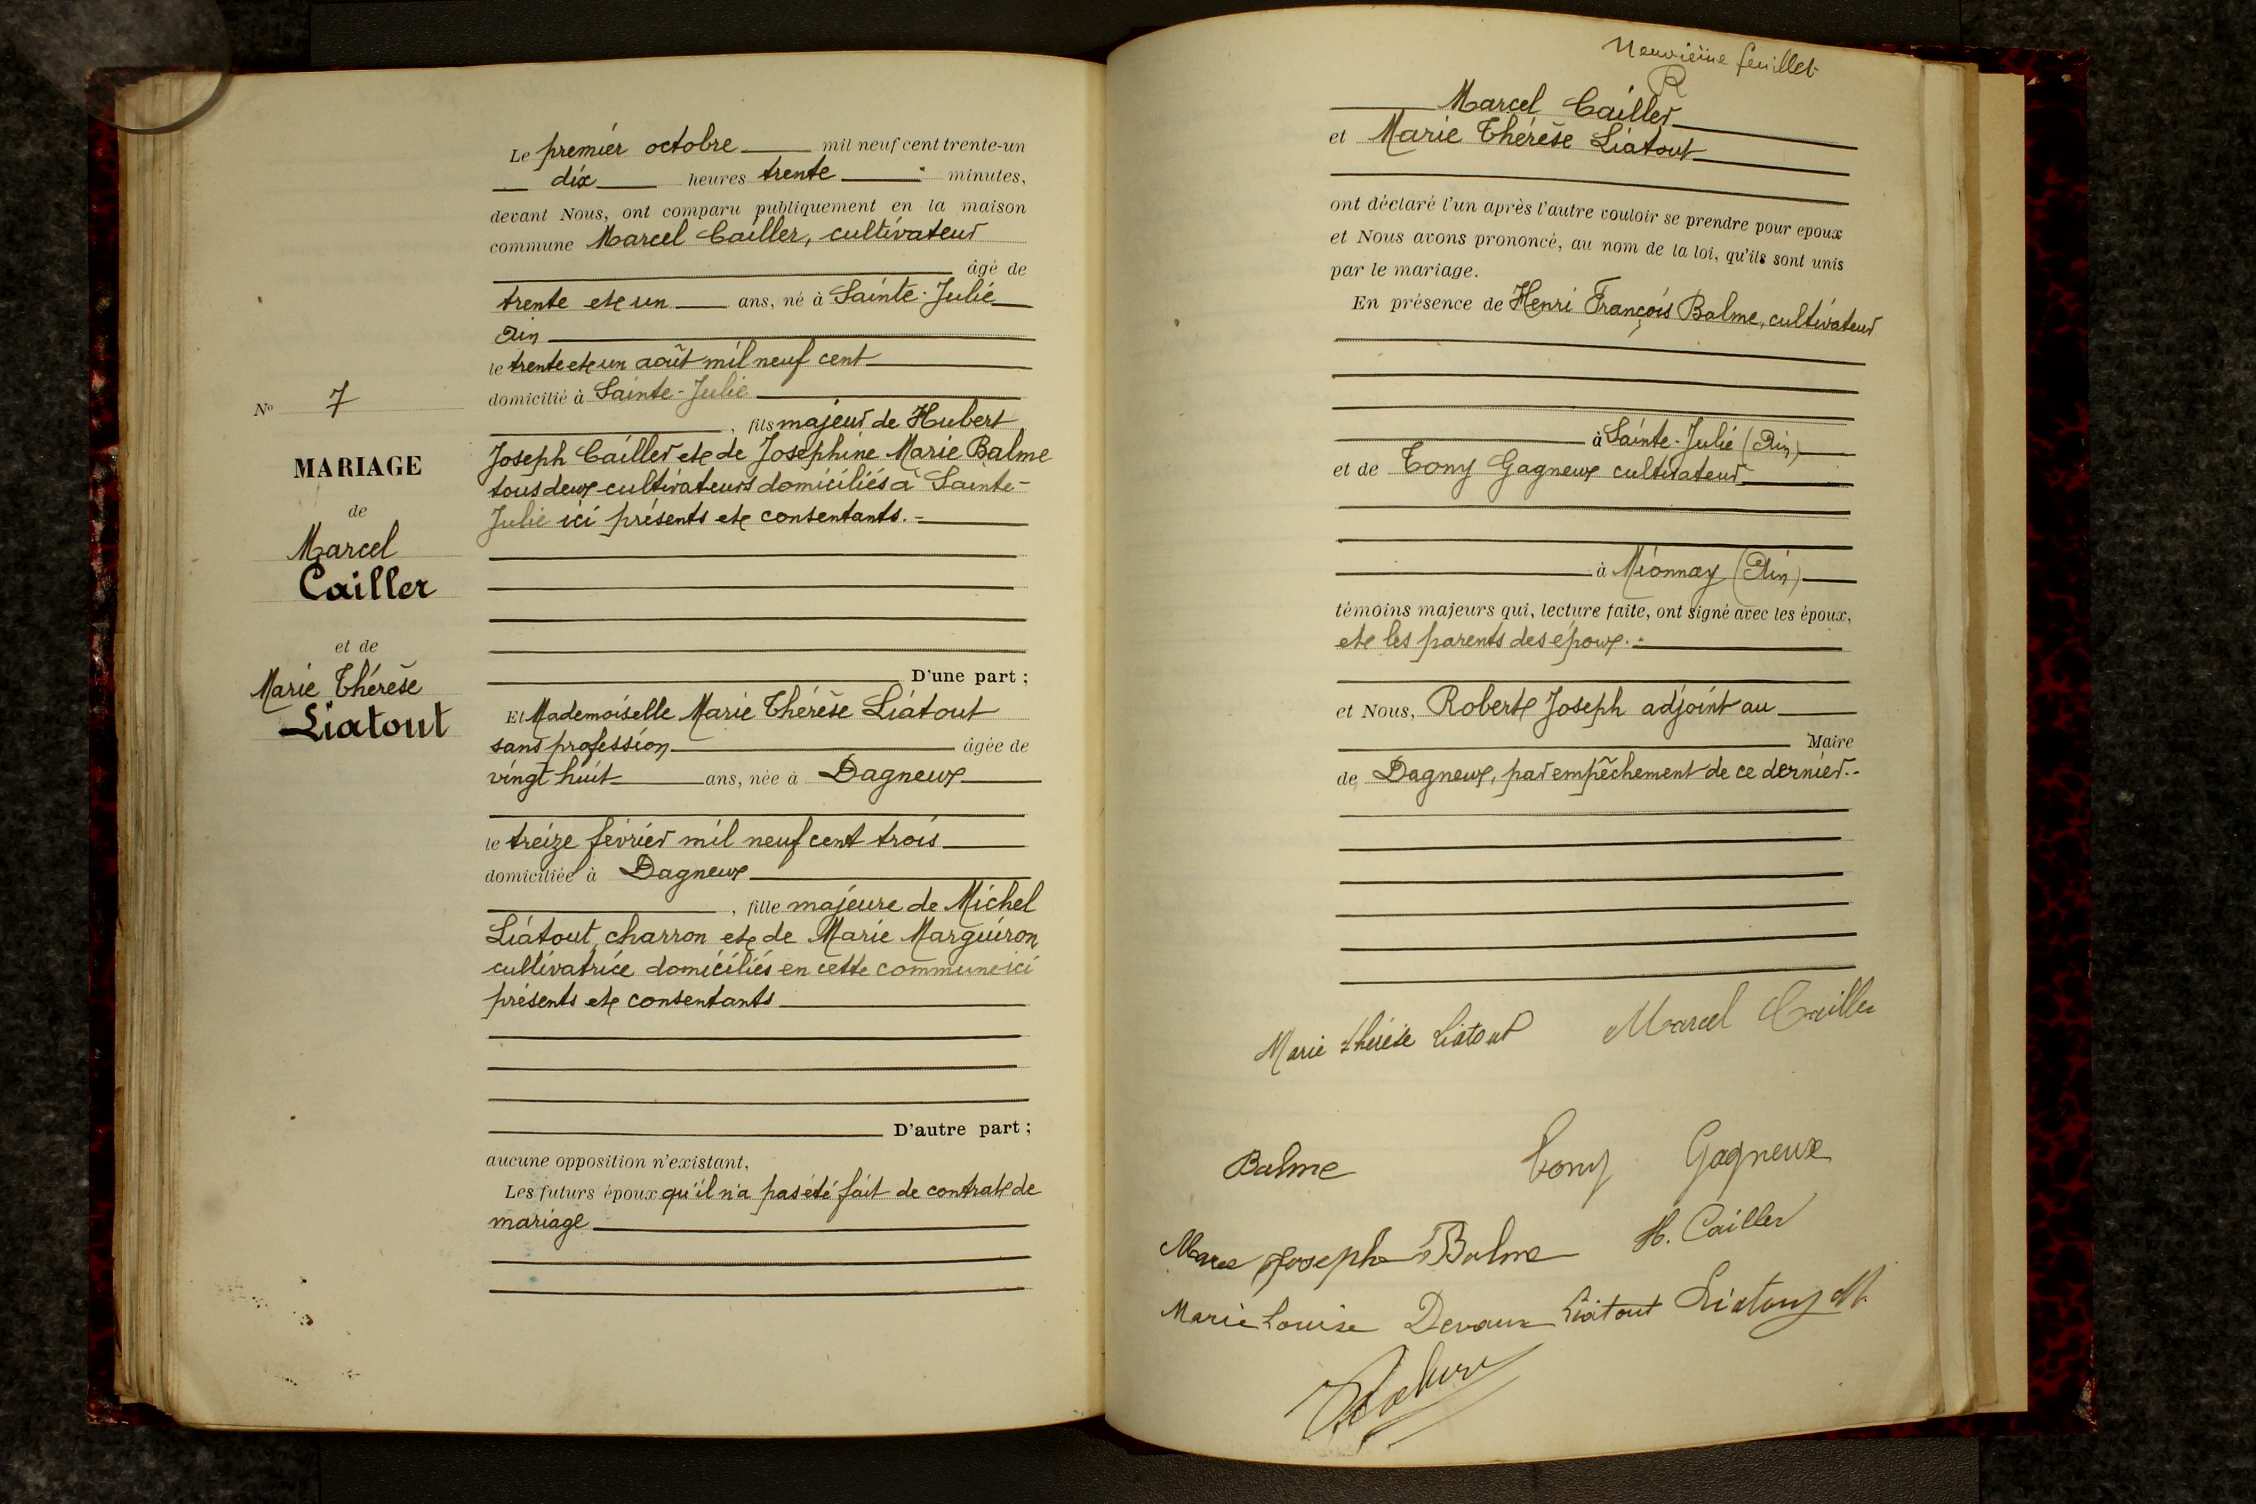 Le premier octobre mil neuf cent trente-un
dix heures trente minutes,
devant Nous, ont comparu publiquement en la maison
commune Marcel Cailler, cultivateur
âgé de
trente et un ans, né à Sainte-Julie
Ain
le trente et un août mil neuf cent
domicilié à Sainte-Julie
, fils majeur de Hubert
Joseph Cailler et de Josephine Marie Balme
tous deux cultivateurs domiciliés à Sainte-
Julie ici présents et consentants.-
D'une part ;
Et Mademoiselle Marie Thérèse Liatout
sans profession âgée de
vingt huit ans, née à Dagneux
le treize février mil neuf cent trois
domiciliée à Dagneux
, fille majeure de Michel
Liatout, charron et de Marie Marguiron
cultivatrice domiciliés en cette commune ici
présents et consentants
D'autre part ;
aucune opposition n'existant,
Les futurs époux qu'il n'a pas été fait de contrat de
mariage
No 7
MARIAGE
de
Marcel
Cailler
et de
Marie Thérèse
Liatout
Neuvième feuillet
R
Marcel Cailler
et Marie Thérèse Liatout
ont déclaré l'un après l'autre vouloir se prendre pour epoux
et Nous avons prononcé, au nom de la loi, qu'ils sont unis
par le mariage.
En présence de Henri François Balme, cultivateur
à Sainte-Julie (Ain)
et de Tony Gagneux cultivateur
à Mionnay (Ain)
témoins majeurs qui, lecture faite, ont signé avec les époux,
et les parents des époux.-
et Nous, Robert Joseph adjoint au
Maire
de Dagneux, par empêchement de ce dernier.-
Marie thérèse Liatout Marcel Cailler
Balme Tony Gagneux
Joseph Balme H. Cailler
Marie Louise Devaux Liatout Liatout M.